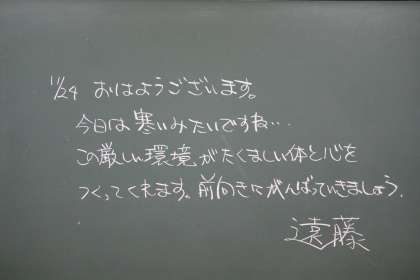 11/24 おはようございます。
今日は寒いみたいですね…
この厳しい環境がたくましい体と心を
つくってくれます。前向きにがんばっていきましょう。
遠藤